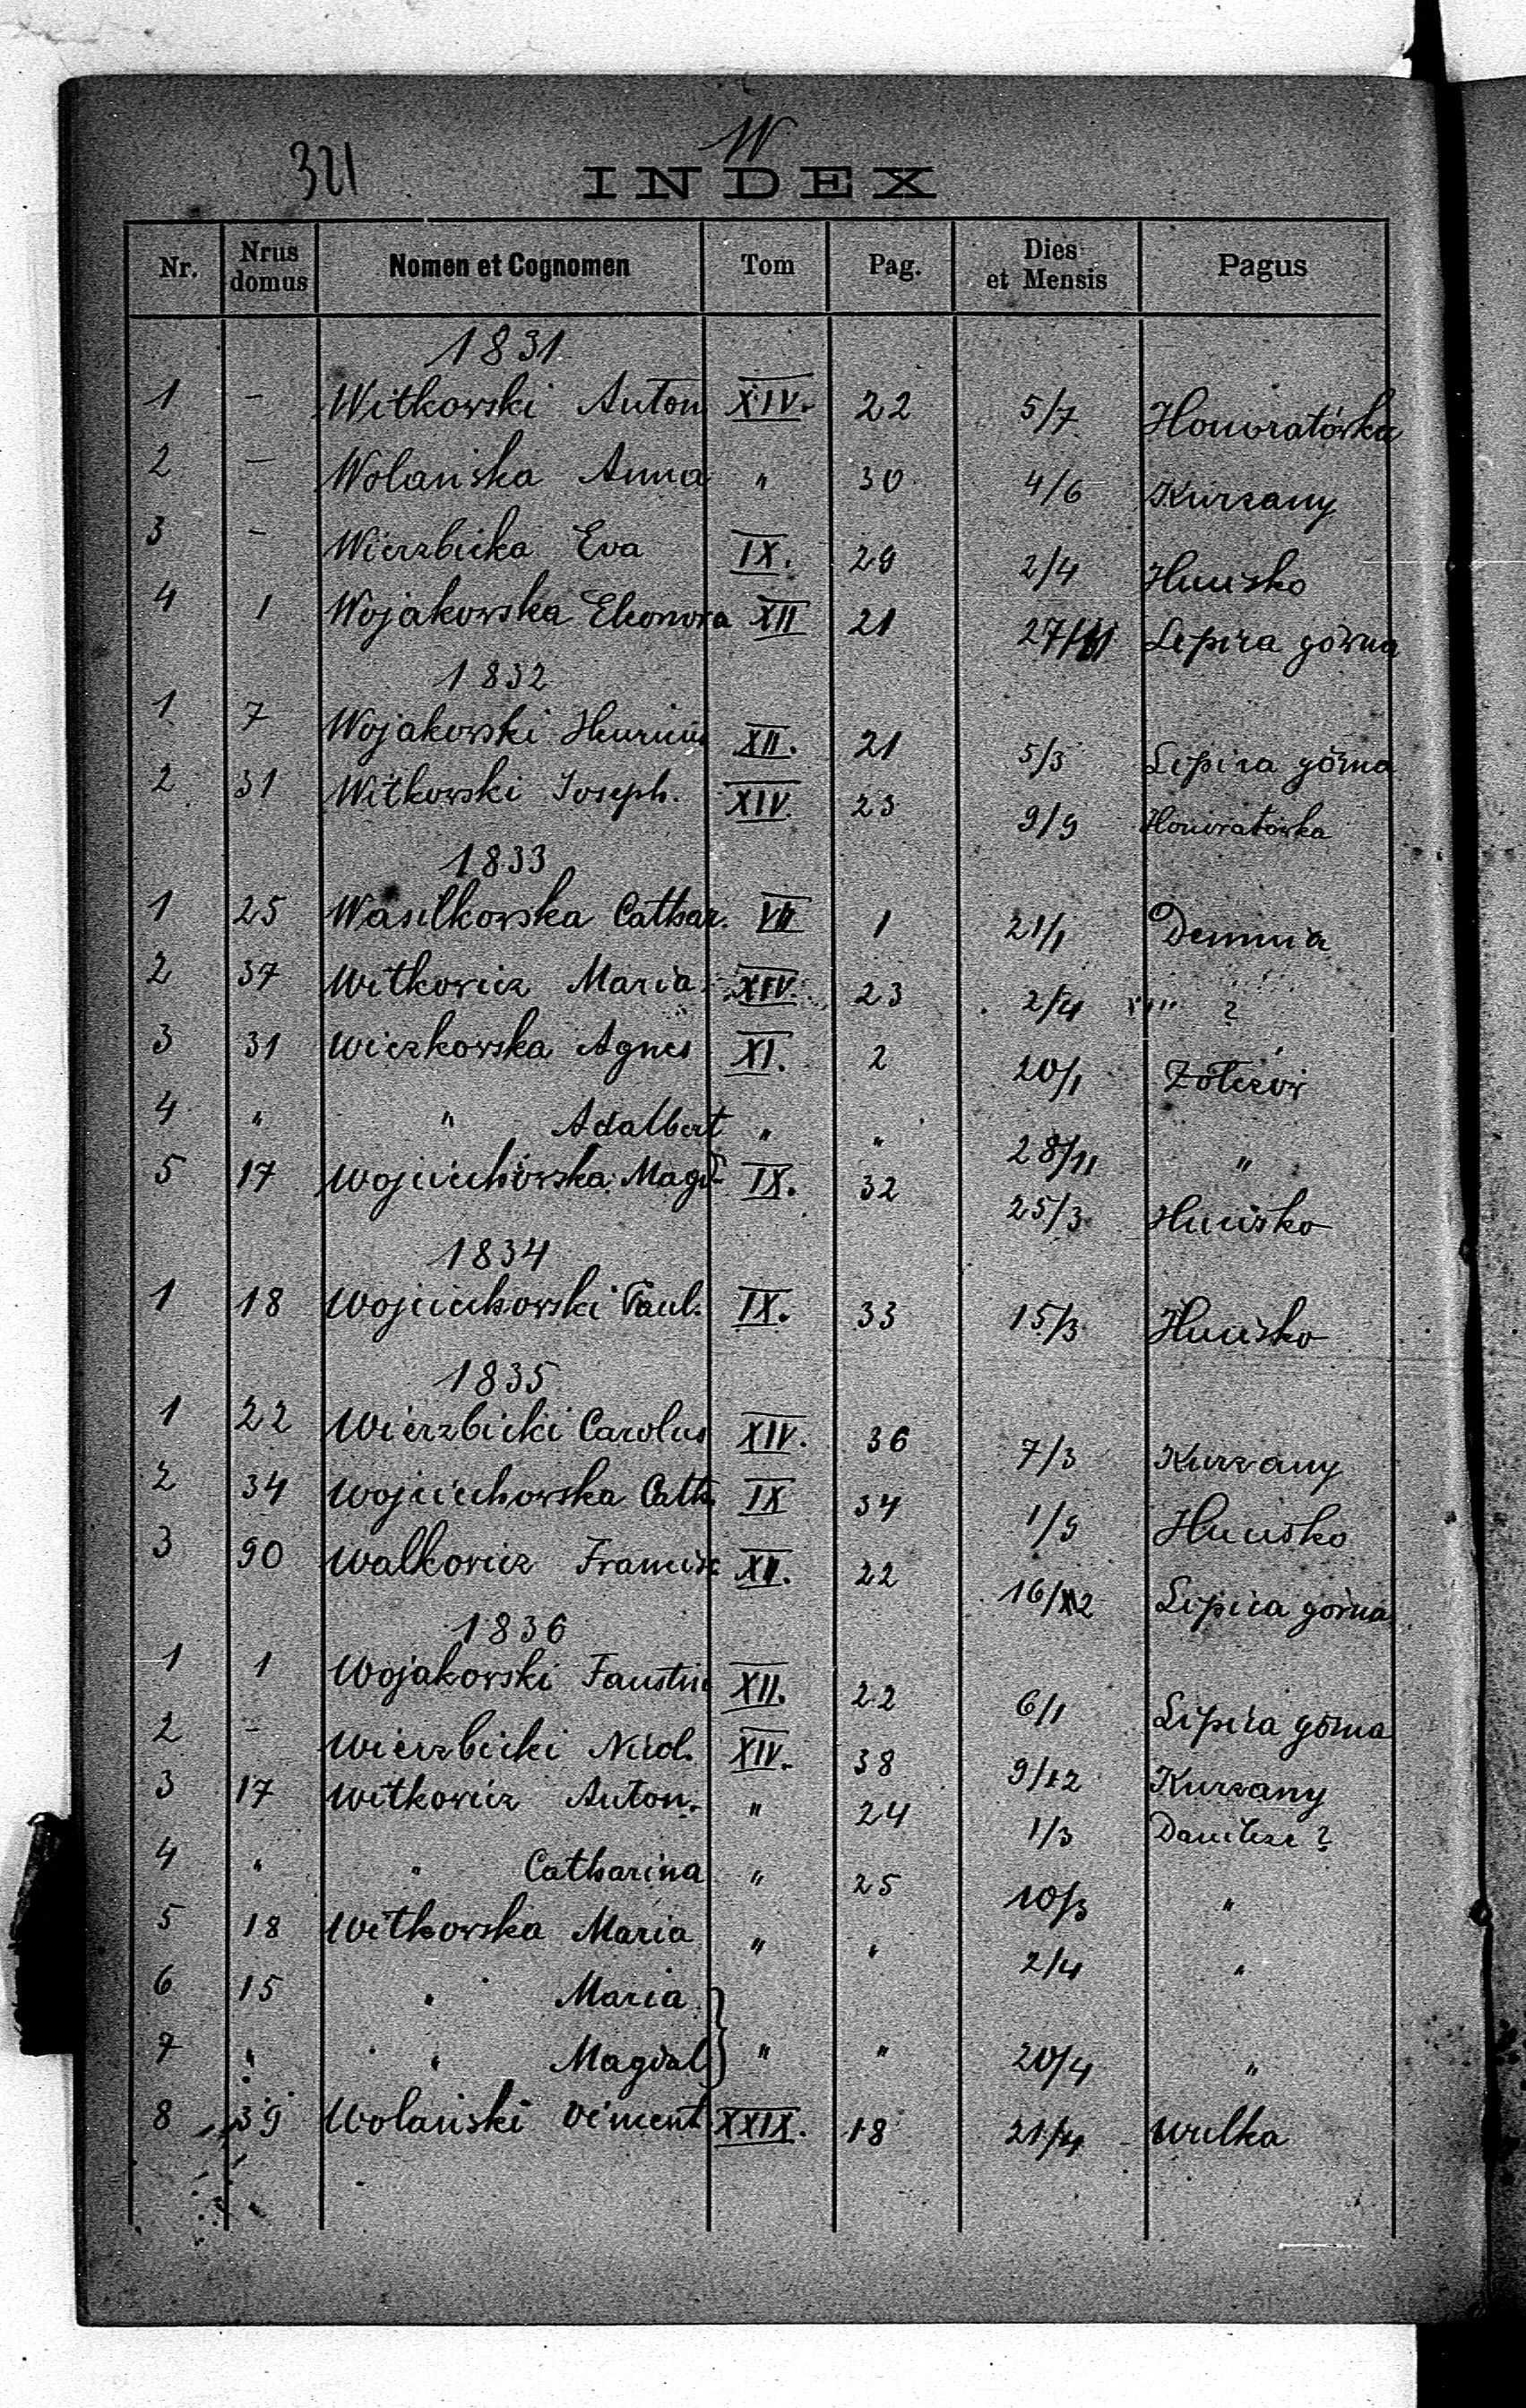 W
321
INDEX
Nr. Nrus domus Nomen et Cognomen Tom Pag. Dies et Mensis Pagus
1831
1 – Witkowski Anton XIV. 22 5/7 Honoratówka
2 – Wolańska Anna " 30 4/6 Kurzany
3 – Wierzbicka Eva IX. 29 2/4 Hucisko
4 1 Wojakowska Eleonora XII 21 Lipica górna
1832
1 7 Wojakowski Henricus XII. 21 5/3 Lipica górna
2 31 Witkowski Joseph. XIV. 23 9/9 Honoratówka
1833
1 25 Wasilkowska Cathar. VII 1 21/1 Demnia
2 37 Witkowicz Maria XIV. 23 2/4 " ?
3 31 Wiczkowska Agnes XI. 2 20/1
4 " " Adalbert " " 28/11 "
5 17 Wojciechowska Magd IX. 32 25/3 Hucisko
1834
1 18 Wojciechowski Paul. IX. 33 15/3 Hucisko
1835
1 22 Wierzbicki Carolus XIV. 36 7/3 Kurzany
2 34 Wojciechowska Cath. IX 34 1/9 Hucisko
3 90 Walkowicz Francisc XII. 22 16/12 Lipica górna
1836
1 1 Wojakowski Faustin XII. 22 6/1 Lipica górna
2 – Wierzbicki Nicol. XIV. 38 9/12 Kurzany
3 17 Witkowicz Anton. " 24 1/3 Danilcze ?
4 " " Catharina " 25 10/3 "
5 18 Witkowska Maria " " 2/4 "
6 15 " Maria
7 " " Magdal } " " 20/4 "
8 39 Wolański Vincent XXIX. 18 21/4 Wulka